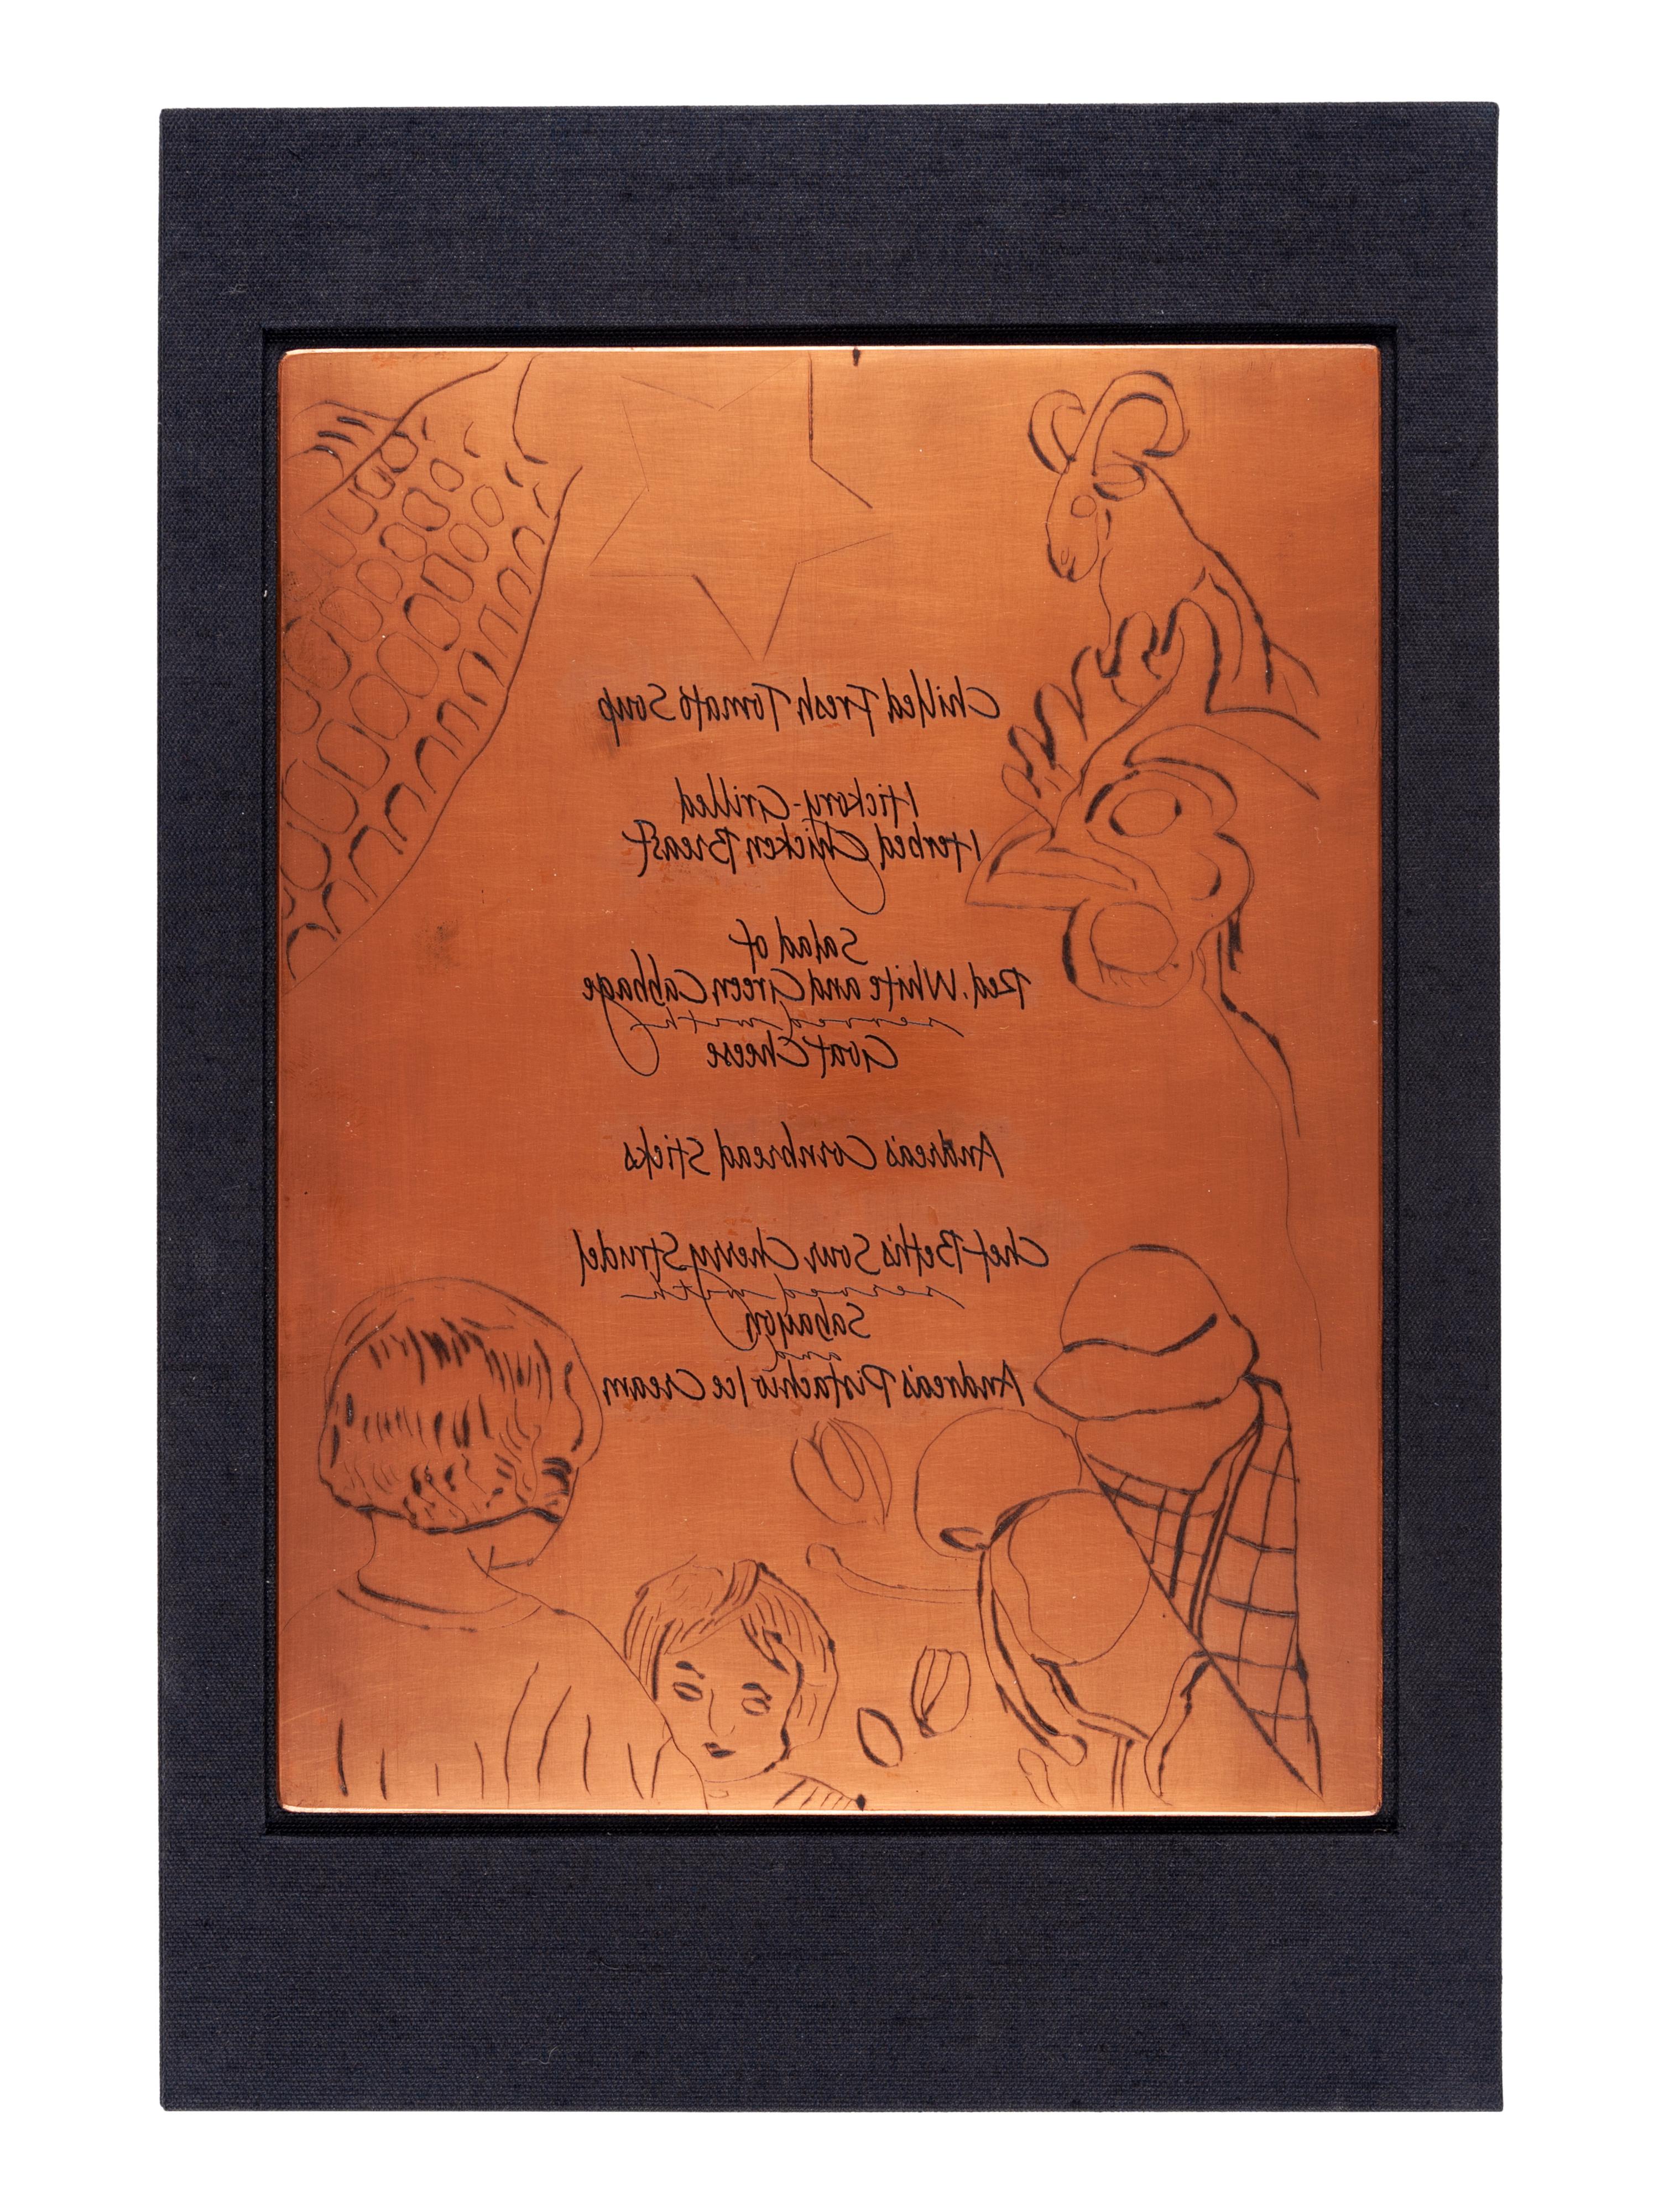 Chilled Fresh Tomato Soup
Hickory-Grilled
Herbed Chicken Breast
Salad of
Red, White and Green Cabbage
served with
Goat Cheese
Andrea's Cornbread Sticks
Chef Beth's Sour Cherry Strudel
served with
Sabayon
and
Andrea's Pistachio Ice Cream